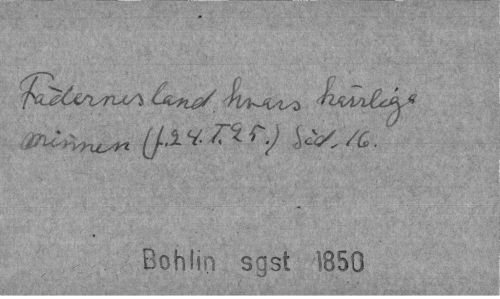 Fädernesland hvars härrliga
minnen (f.24. T.25.) Sid. 16.
Bohlin sgst 1850